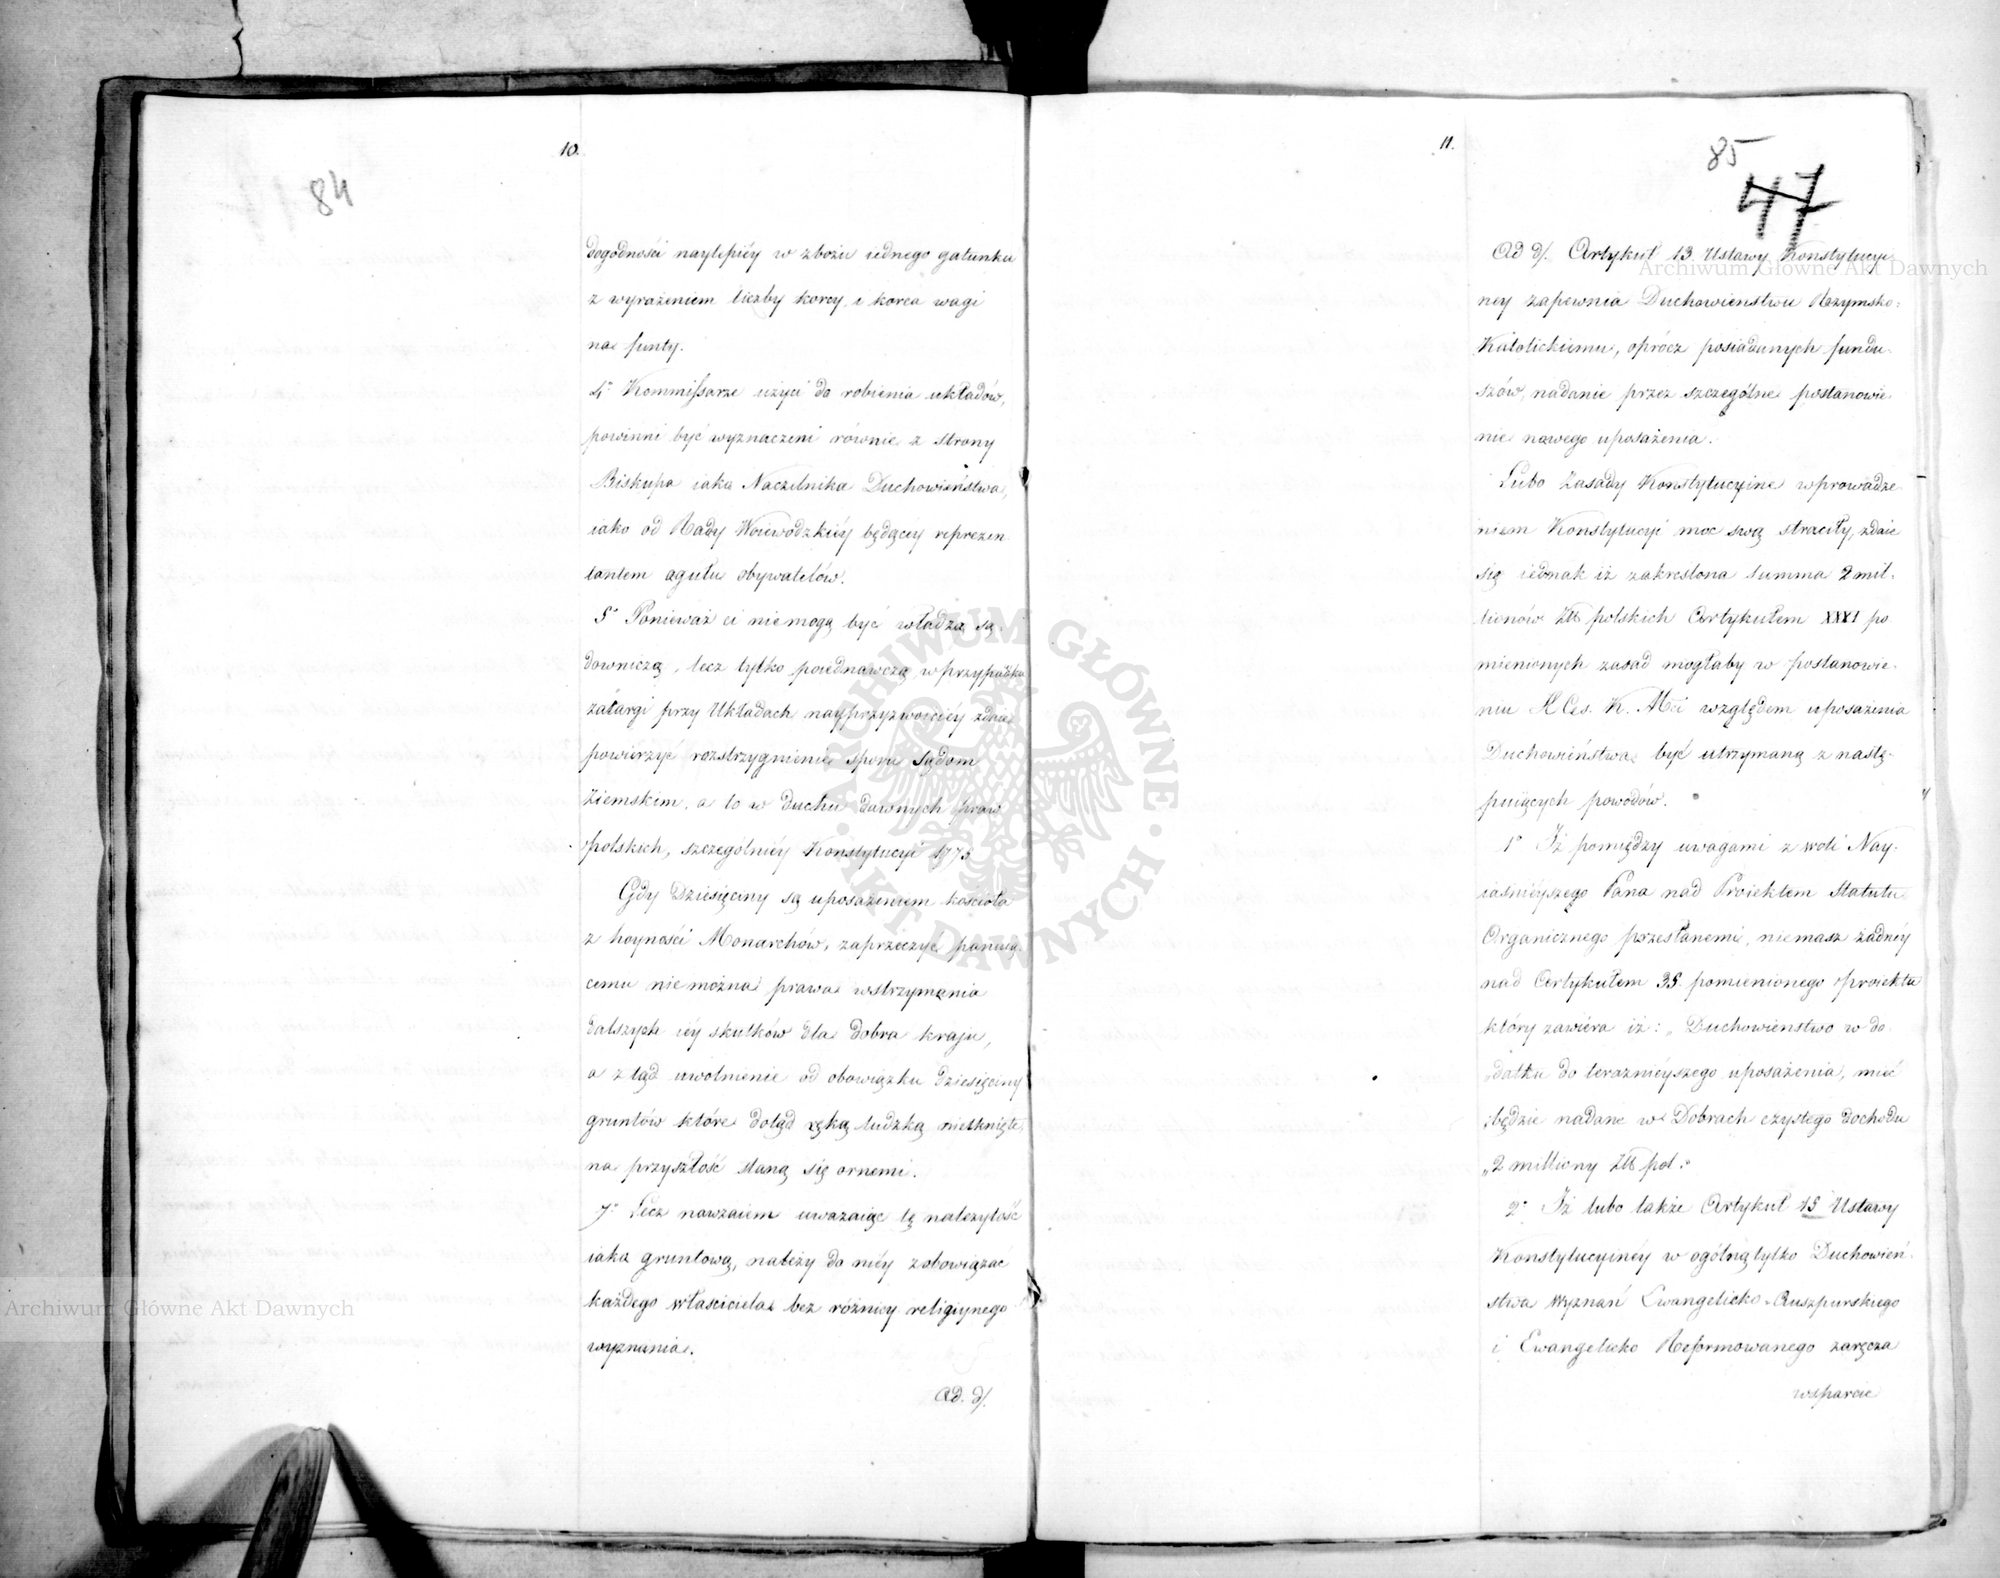 10.
84
dogodności naylepiéy w zbożu iednego gatunku
z wyrażeniem liczby korcy, i korca wagi
na funty.
4° Kommissarze użyci do robienia układów,
powinni być wyznaczeni równie z strony
Biskupa iako Naczelnika Duchowieństwa,
iako od Rady Woiewodzkiéy będącey reprezen
tantem ogułu obywatelów.
5° Ponieważ ci niemogą być władzą są-
downiczą, lecz tylko poiednawczą, w przypadku
zatargi przy Układach nayprzyzwoiciéy zdaie
powierzyć rozstrzygnienie sporu Sądom
Ziemskim, a to w duchu dawnych praw
polskich, szczególniéy Konstytucyi 1775
Gdy Dziesięciny są uposażeniem kościoła
z hoyności Monarchów, zaprzeczyć panują-
cemu niemożna prawa wstrzymania
dalszych iéy skutków dla dobra kraju,
a z tąd uwolnienie od obowiązku dziesięciny
gruntów które dotąd ręką ludzką nietknięte
na przyszłość staną się ornemi.
7° Lecz nawzaiem uważaiąc tę należytość
iako gruntową, należy do niéy zobowiązać
każdego właściciela bez różnicy religiynego
wyznania.
Ad. d/.
11.
85
47
Ad d/. Artykuł 13 Ustawy Konstytucyi-
ney zapewnia Duchowieństwu Rzymsko-
Katolickiemu, oprócz posiadanych fundu-
szów, nadanie przez szczególne postanowie-
nie nowego uposażenia.
Lubo Zasady Konstytucyine wprowadze-
niem Konstytucyi moc swą straciły, zdaie
się iednak iż zakreslona summa 2 mil-
lionów Złł polskich Artykułem XXXI po
mienionych zasad mogłaby w postanowie-
niu N Ces. K. Mci względem uposażenia
Duchowieństwa być utrzymaną z nastę-
puiących powodów.
1° Iż pomiędzy uwagami z woli Nay-
iaśnieyszego Pana nad Proiektem Statutu
Organicznego przesłanemi, niemasz żadnéy
nad Artykułem 35. pomienionego proiektu
który zawiéra iż: „Duchowieństwo w do
„datku do teraznieyszego uposażenia, mieć
„będzie nadane w Dobrach czystego dochodu
„2 milliony Złł pol:"
2° Iż lubo także Artykuł 15 Ustawy
Konstytucyinéy w ogólną tylko Duchowień-
stwa Wyznań Ewangelicko-Auszpurskiego
i Ewangelicko Reformowanego zaręcza
wsparcie
Archiwum Główne Akt Dawnych
Archiwum Główne Akt Dawnych
ARCHIWUM GŁÓWNE · AKT DAWNYCH ·